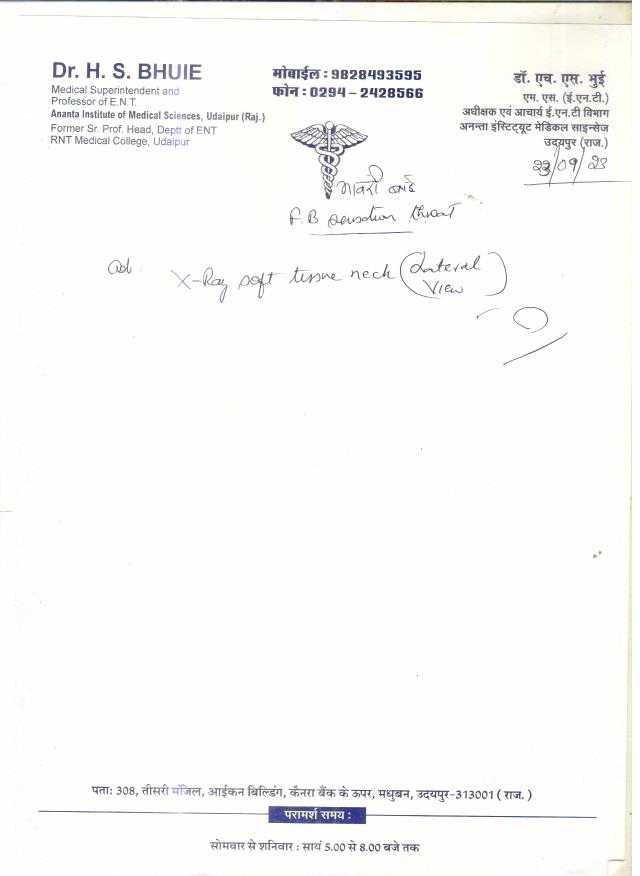 Dr. H. S. BHUIE
Medical Superintendent and
Professor of E.N.T.
Ananta Institute of Medical Sciences, Udaipur (Raj.)
Former Sr. Prof. Head, Deptt of ENT
RNT Medical College, Udaipur
मोबाईल : 9828493595
फोन : 0294 - 2428566
डॉ. एच. एस. भुई
एम. एस. (ई.एन.टी.)
अधीक्षक एवं आचार्य ई.एन.टी विभाग
अनन्ता इंस्टिट्यूट मेडिकल साइन्सेज
उदयपुर (राज.)
23/09/23
बाई
F.B sensation throat
Ad:
X-Ray soft tissue neck (Lateral
View)
पताः 308, तीसरी मंजिल, आईकन बिल्डिंग, कैनरा बैंक के ऊपर, मधुबन, उदयपुर-313001 ( राज. )
परामर्श समय :
सोमवार से शनिवार : सायं 5.00 से 8.00 बजे तक